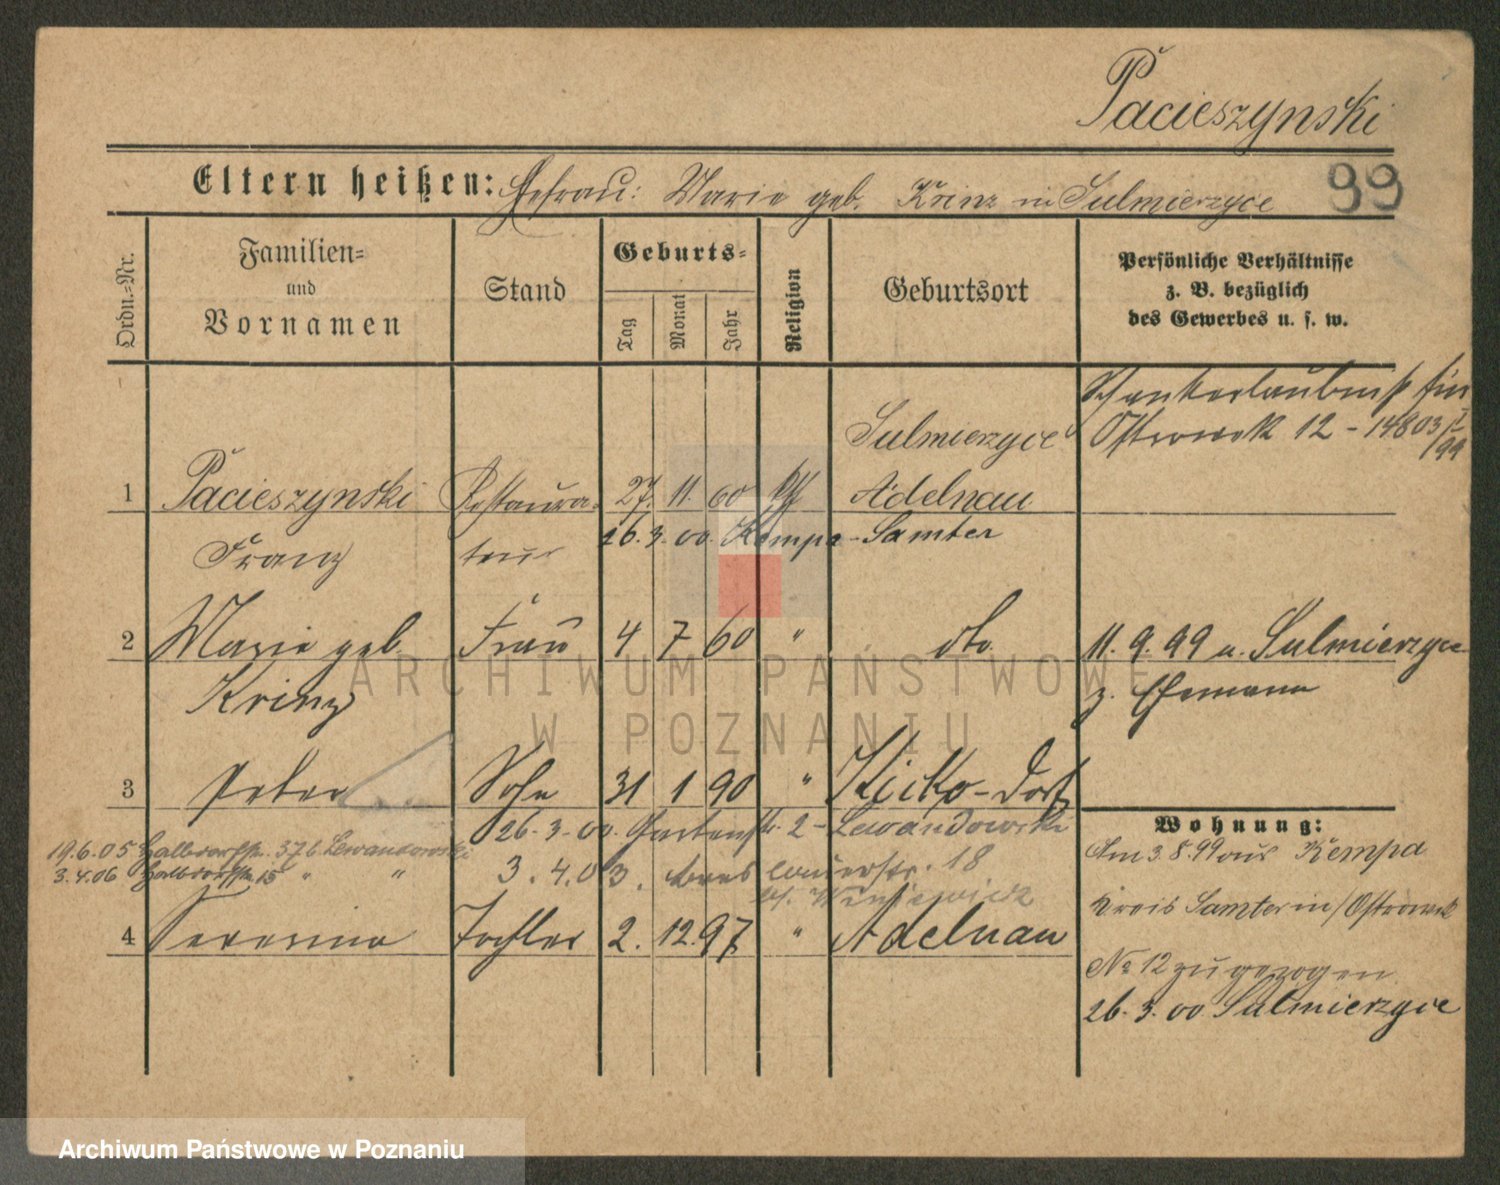 Pacieszynski
Eltern heißen: Ehefrau: Marie geb. Krinz in Sulmierzyce
99
Ordn.-Nr.
Familien-
und
Vornamen
Stand
Geburts-
Tag
Monat
Jahr
Religion
Geburtsort
Persönliche Verhältnisse
z. B. bezüglich
des Gewerbes u. s. w.
Schankerlaubniß für
Sulmierzyce
Ostrowek 12 - 14803/99
1 Pacieszynski Restaura- 27. 11. 60 Adelnau
26.3.00. Kempa - Samter
Franz teur
2 Marie geb. Frau 4 7 60 " dto.
11. 9. 99 n. Sulmierzyce
Krinz
z. Ehemann
3 Peter Sohn 31 1 90 " Dorf
26.3.00. Gartenstr. 2 - Lewandowski
Wohnung:
19.6.05 Halbdorfstr. 37b Lewandowski
Am 3.8.99 aus Kempa
3.4.06 Halbdorfstr. 15 " "
3.4.03. 18
Kreis Samter in Ostrowek
4 Tochter 2. 12. 97 " Adelnau
No 12 zugezogen
26.3.00 Sulmierzyce
ARCHIWUM PAŃSTWOWE
W POZNANIU
Archiwum Państwowe w Poznaniu